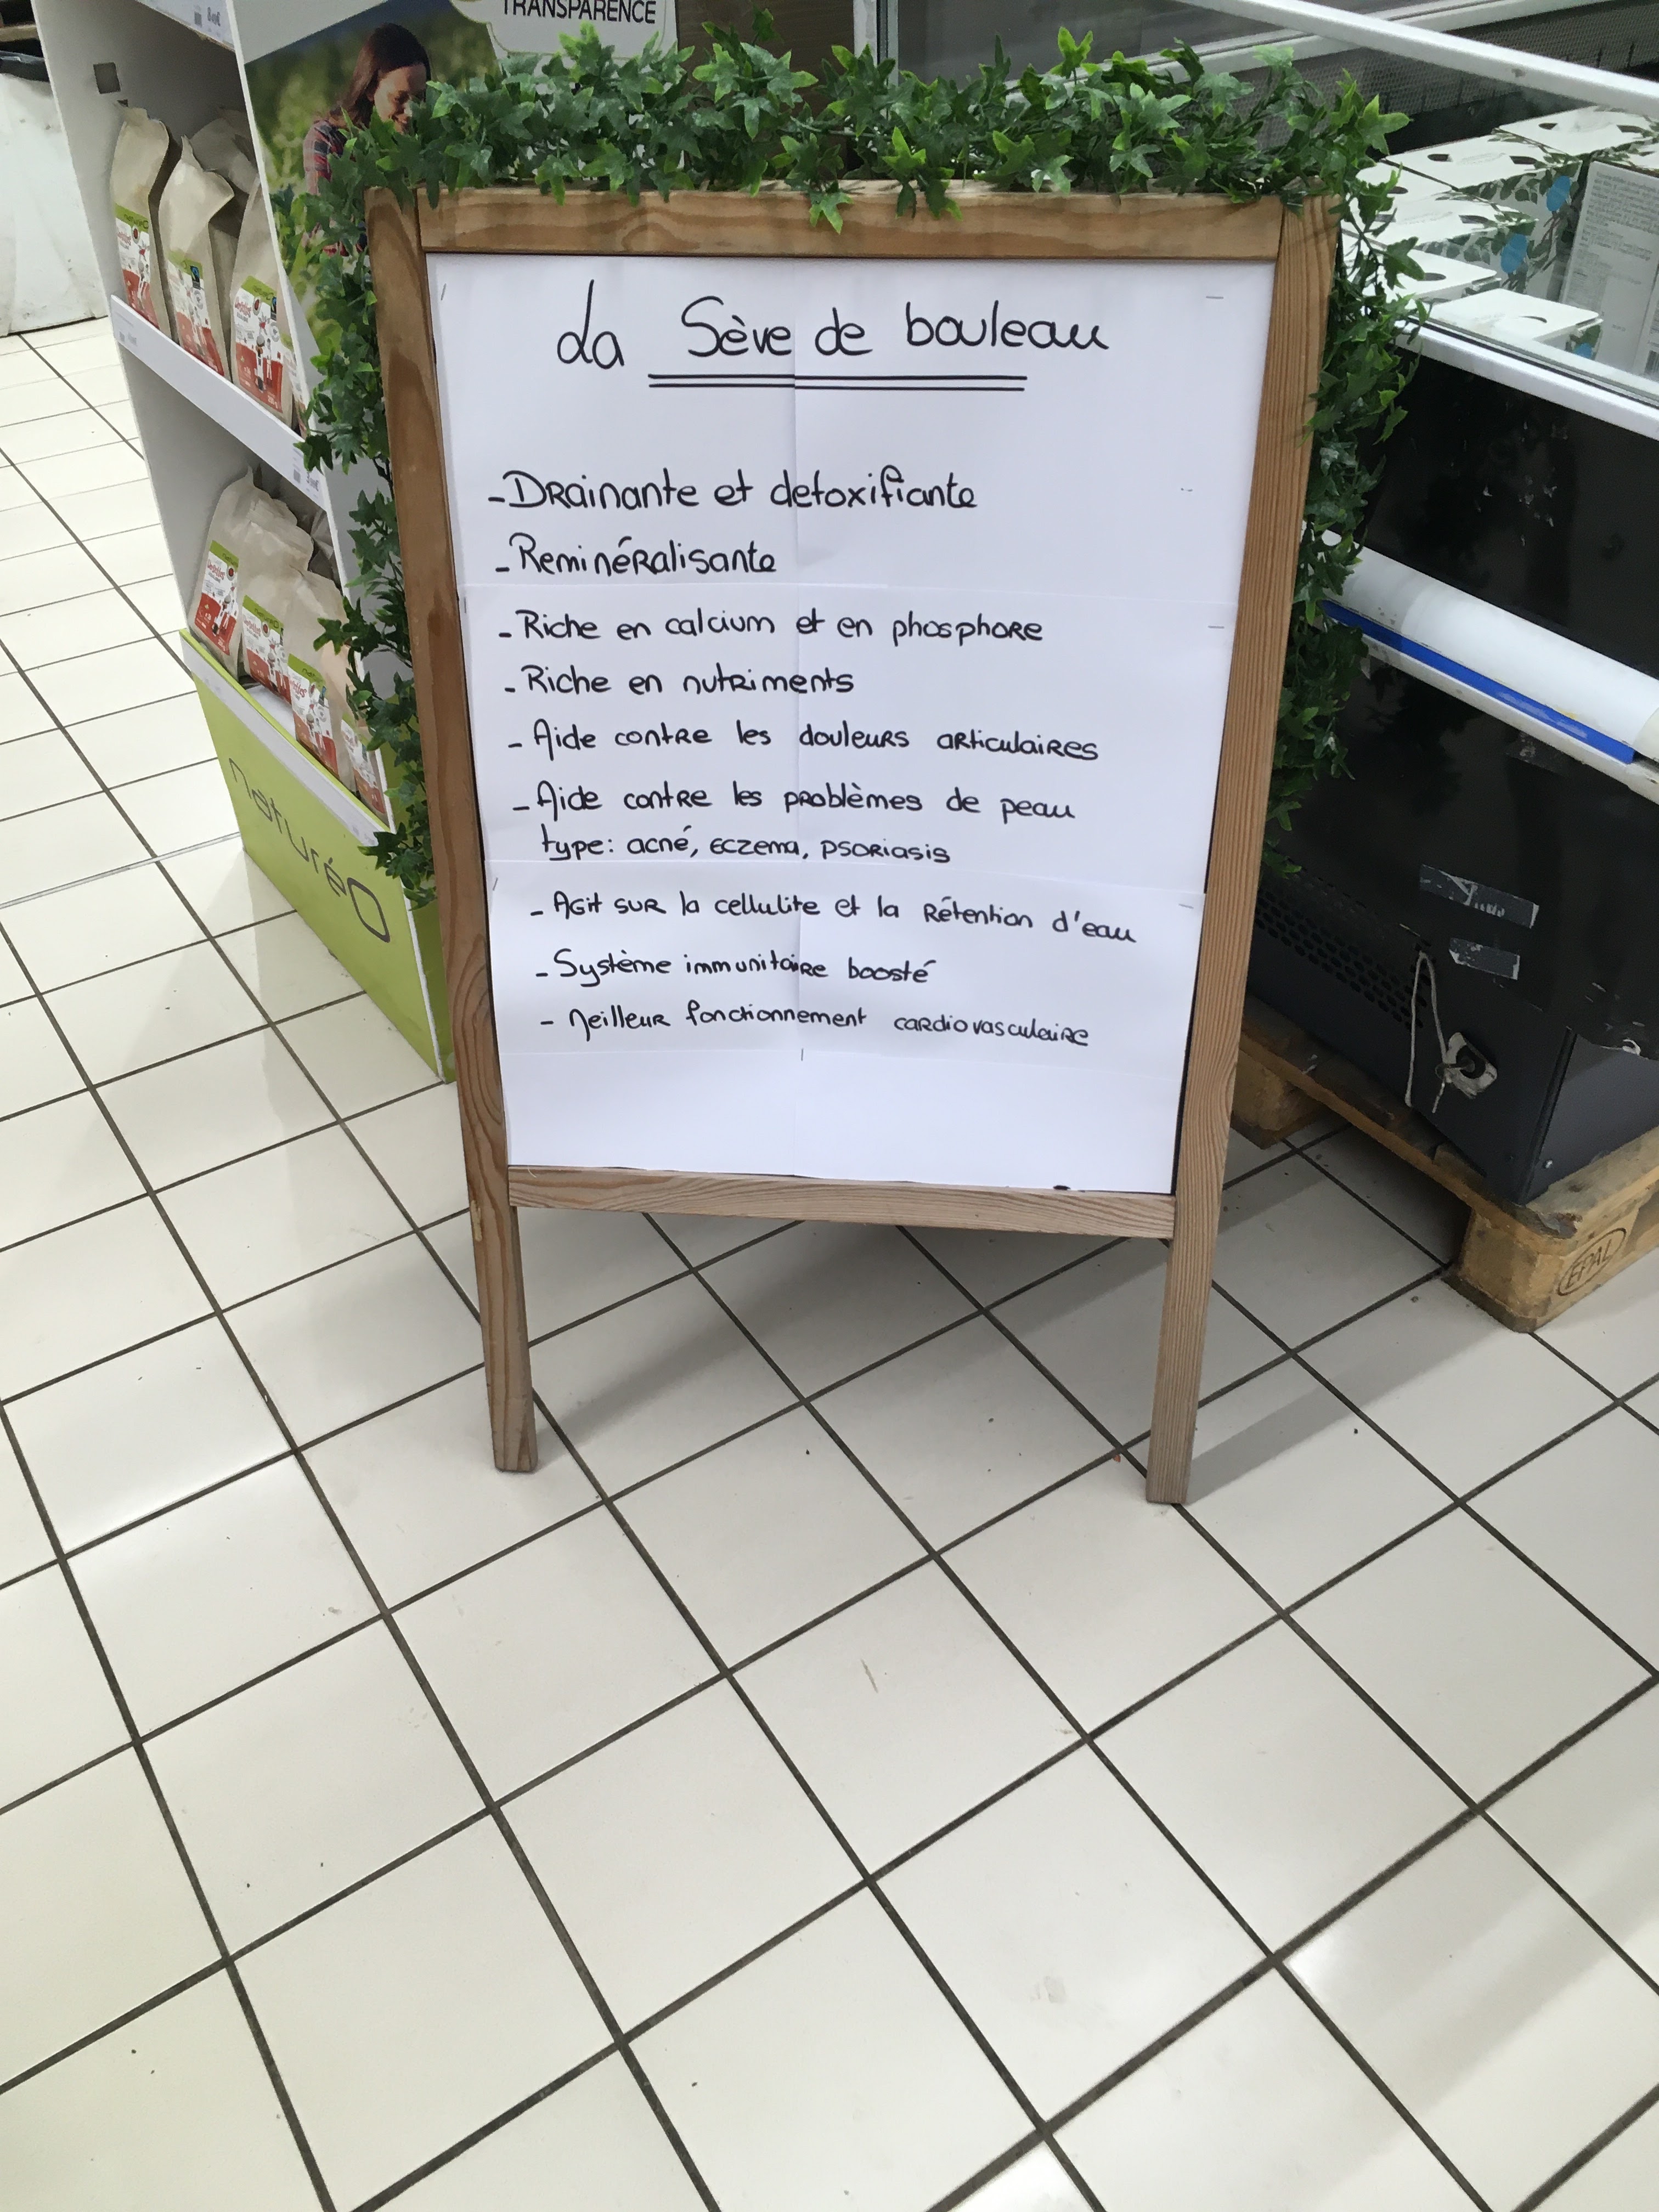 TRANSPARENCE
La Sève de bouleau
- Drainante et detoxifiante
- Reminéralisante
- Riche en calcium et en phosphore
- Riche en nutriments
- Aide contre les douleurs articulaires
- Aide contre les problèmes de peau
type: acné, eczema, psoriasis
- Agit sur la cellulite et la rétention d'eau
- Système immunitaire boosté
- Meilleur fonctionnement cardiovasculaire
naturéO
EPAL